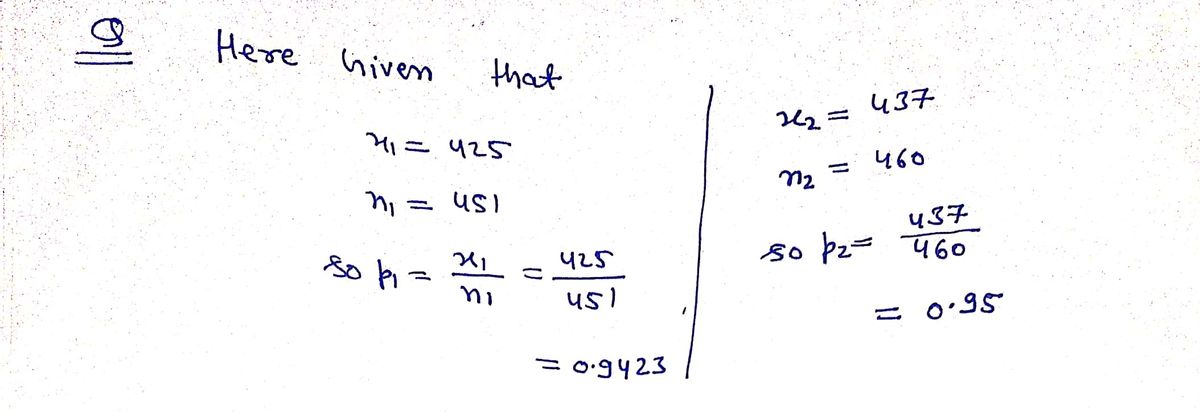 Q Here Given that
x₁ = 425
n₁ = 451
so p₁ = x₁/n₁ = 425/451
= 0.9423
x₂ = 437
n₂ = 460
so p₂ = 437/460
= 0.95